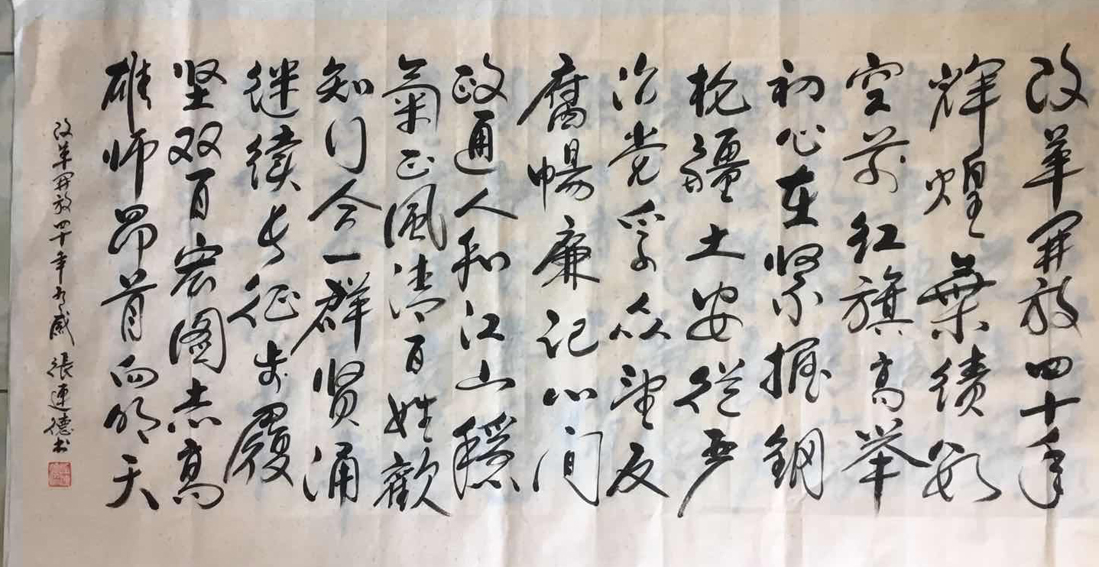 改革开放四十年
辉煌業绩数
空前红旗高举
初心在紧握钢
枪疆土安從严
治党孚众望反
腐暢廉记心间
政通人和江山穩
氣正風清百姓歡
知行合一群贤涌
继续长征步履
坚双百宏图志高
雄师昂首向明天
改革开放四十年有感 張連德书